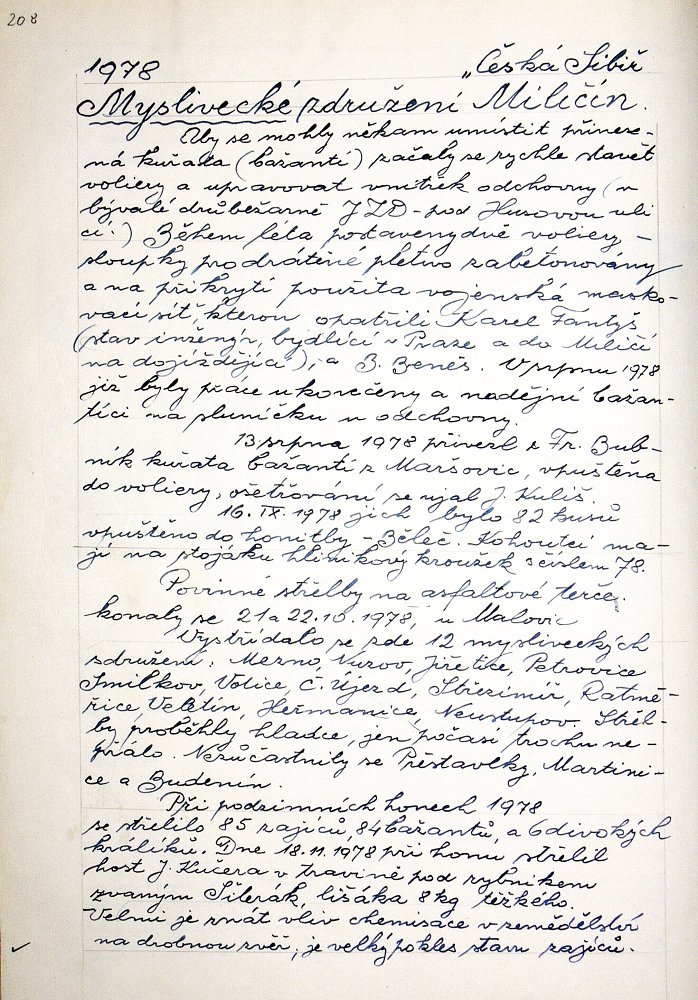 208
1978 „Česká Sibiř
Myslivecké združení Miličín.
Aby se mohly někam umístit přineze-
ná kuřata (bažantí) začaly se rychle stavět
voliery a upravovat vnitřek odchovny (v
bývalé drůbežárně JZD - pod Husovou uli
cí.) Během léta postaveny dvě voliery -
sloupky pro drátěné pletivo zabetonovány
a na přikrytí použita vojenská masko-
vací síť, kterou opatřili Karel Fantyš
(stav inženýr, bydlící v Praze a do Miličí
na dojíždějící), a B. Beneš. V srpnu 1978
již byly práce ukončeny a nadějní bažan-
tíci na sluníčku u odchovny.
13 srpna 1978 přivezl s Fr. Bub-
ník kuřata bažantí z Maršovic, vpuštěna
do voliery, ošetřování se ujal J. Kuliš.
16. IX. 1978 jich bylo 82 kusů
vpuštěno do honitby - Běleč. Kohoutci ma-
jí na stojáku hliníkový kroužek s číslem 78.
Povinné střelby na asfaltové terče
konaly se 21 a 22.10.1978, u Malovic
Vystřídalo se zde 12 mysliveckých
sdružení: Mezno, Nuzov, Jiřetice, Petrovice
Smilkov, Votice, Č. Újezd, Střezimíř, Ratmě-
řice, Veletín, Heřmanice, Neustupov. Střel-
by proběhly hladce, jen počasí trochu ne-
přálo. Nezůčastnily se Přestavlky, Martini-
ce a Budenín.
Při podzimních honech 1978
se střelilo 85 zajíců, 84 bažantů, a 6 divokých
králíků. Dne 18.11.1978 při honu střelil
host J. Kučera v travině pod rybníkem
zvaným Silerák, lišáka 8 kg těžkého.
Velmi je znát vliv chemisace v zemědělství
na drobnou zvěř, je velký pokles stavu zajíců.